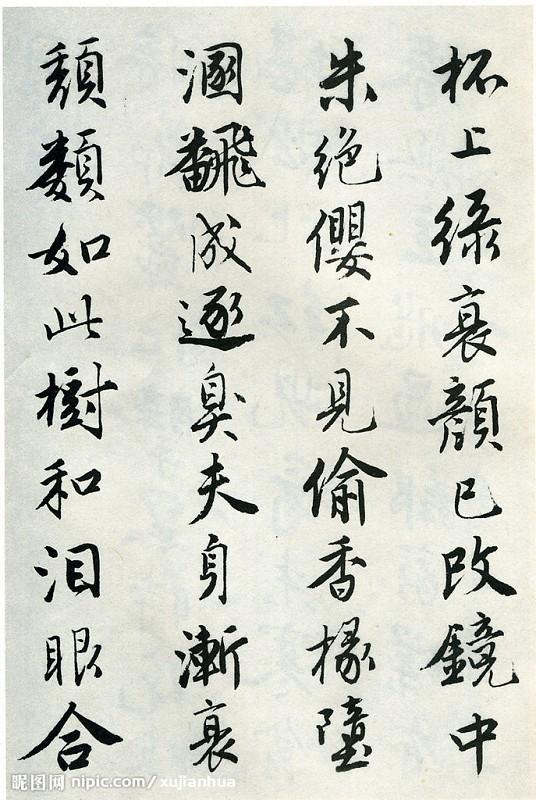 杯上綠衰顏已改鏡中
朱絕纓不見偷香椽墮
溷飜成逐臭夫身漸衰
頽類如此樹和泪眼合
昵图网 nipic.com/xujianhua